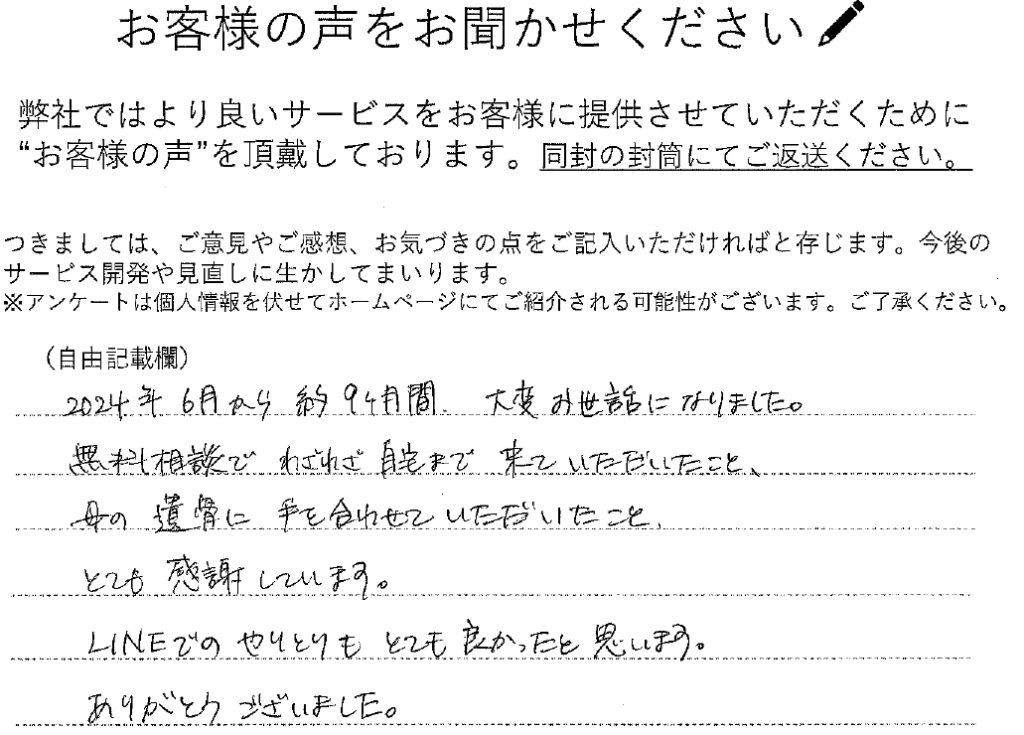 お客様の声をお聞かせください
弊社ではより良いサービスをお客様に提供させていただくために
“お客様の声”を頂戴しております。同封の封筒にてご返送ください。
つきましては、ご意見やご感想、お気づきの点をご記入いただければと存じます。今後の
サービス開発や見直しに生かしてまいります。
※アンケートは個人情報を伏せてホームページにてご紹介される可能性がございます。ご了承ください。
（自由記載欄）
2024年 6月から 約9ヶ月間、大変お世話になりました。
無料相談で わざわざ 自宅まで 来ていただいたこと、
母の 遺骨に 手を合わせて いただいたこと、
とても 感謝しています。
LINEでの やりとりも とても 良かったと 思います。
ありがとう ございました。